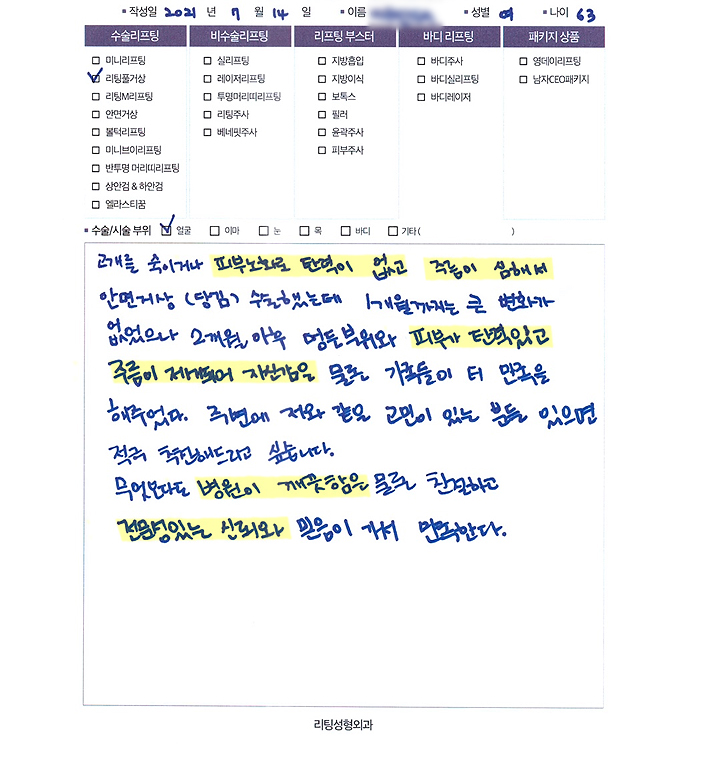 작성일 2021 년 7 월 14 일 이름 성별 여 나이 63
수술리프팅 비수술리프팅 리프팅 부스터 바디 리프팅 패키지 상품
미니리프팅 실리프팅 지방흡입 바디주사 영데이리프팅
리팅풀거상 레이저리프팅 지방이식 바디실리프팅 남자CEO패키지
리팅M리프팅 투명머리띠리프팅 보톡스 바디레이저
안면거상 리팅주사 필러
볼턱리프팅 베네핏주사 윤곽주사
미니브이리프팅 피부주사
반투명 머리띠리프팅
상안검 & 하안검
엘라스티꿈
수술/시술 부위 얼굴 이마 눈 목 바디 기타( )
고개를 숙이거나 피부노화로 탄력이 없고 주름이 심해서
안면거상 (당김) 수술했는데 1개월까지는 큰 변화가
없었으나 2개월 이후 부위와 피부가 탄력있고
주름이 제거되어 자신감은 물론 가족들이 더 만족을
해주었다. 주변에 저와 같은 고민이 있는 분들 있으면
적극 추천해드리고 싶습니다.
무엇보다도 병원이 깨끗함은 물론 친절하고
전문성있는 신뢰와 믿음이 가서 만족한다.
리팅성형외과